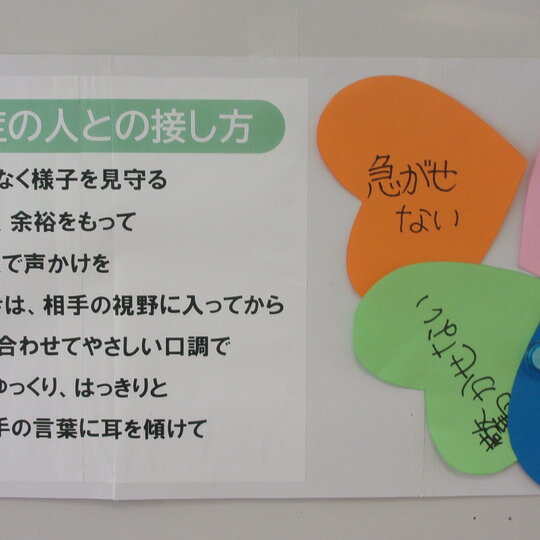 症の人との接し方
なく様子を見守る
、余裕をもって
で声かけを
は、相手の視野に入ってから
合わせてやさしい口調で
ゆっくり、はっきりと
手の言葉に耳を傾けて
急がせ
ない
驚かせない